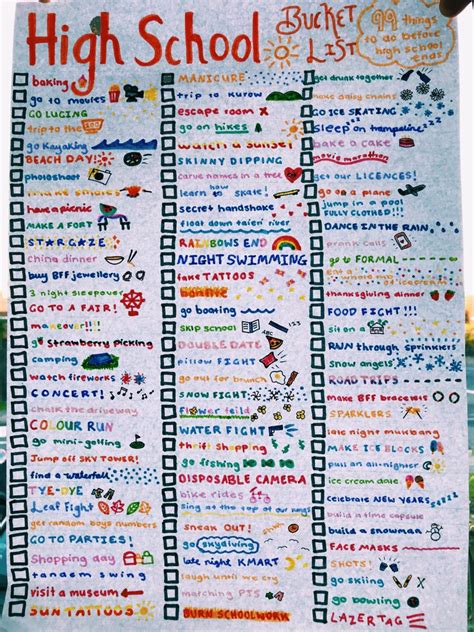 High School
BUCKET LIST
99 things to do before high school ends
baking
go to movies
GO LUGING
trip to the
go Kayaking
BEACH DAY!
photoshoot
make smores
have a picnic
MAKE A FORT
STARGAZE
china dinner
buy BFF jewellery
3 night sleepover
GO TO A FAIR!
makeover!!!
go strawberry picking
camping
watch fireworks
CONCERT!
chalk the driveway
COLOUR RUN
go mini-golfing
Jump off SKY TOWER!
find a waterfall
TYE-DYE
Leaf Fight
get random boys numbers
GO TO PARTIES!
Shopping day
tandem swing
visit a museum
SUN TATTOOS
MANICURE
trip to Kurow
escape room
go on hikes
watch a sunset
SKINNY DIPPING
carve names in a tree
learn how to skate!
secret handshake
float down taieri river
RAINBOWS END
NIGHT SWIMMING
fake TATTOOS
bonfire
go boating
SKIP SCHOOL
DOUBLE DATE
pillow FIGHT
go out for brunch
SNOW FIGHT
flower feild
WATER FIGHT
thrift shopping
go fishing
DISPOSABLE CAMERA
bike rides
sing at the top of our lungs
sneak OUT!
go skydiving
late night KMART
laugh until we cry
marching PJS
BURN SCHOOLWORK
get drunk together
make daisy chains
GO ICE SKATING
sleep on trampoline
bake a cake
movie marathon
get our LICENCES!
go on a plane
jump in a pool FULLY CLOTHED!!!
DANCE IN THE RAIN
prank calls
go to FORMAL
eat a whole tub of icecream
thanksgiving dinner
FOOD FIGHT!
sit on a
RUN through sprinklers
snow angels
ROAD TRIPS
make BFF bracelets
SPARKLERS
late night mustbang
MAKE ICE BLOCKS
pull an all-nighter
ice cream date
celebrate NEW YEARS
build a time capsule
build a snowman
FACE MASKS
SHOTS!
go skiing
go bowling
LAZERTAG